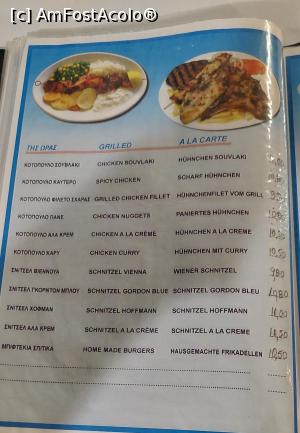 [c] AmFostAcolo®
ΤΗΣ ΩΡΑΣ GRILLED A LA CARTE
ΚΟΤΟΠΟΥΛΟ ΣΟΥΒΛΑΚΙ CHICKEN SOUVLAKI HÜHNCHEN SOUVLAKI
ΚΟΤΟΠΟΥΛΟ ΚΑΥΤΕΡΟ SPICY CHICKEN SCHARF HÜHNCHEN
ΚΟΤΟΠΟΥΛΟ ΦΙΛΕΤΟ ΣΧΑΡΑΣ GRILLED CHICKEN FILLET HÜHNCHENFILET VOM GRILL
ΚΟΤΟΠΟΥΛΟ ΠΑΝΕ CHICKEN NUGGETS PANIERTES HÜHNCHEN
ΚΟΤΟΠΟΥΛΟ ΑΛΑ ΚΡΕΜ CHICKEN A LA CRÈME HÜHNCHEN A LA CREME 10,50
ΚΟΤΟΠΟΥΛΟ ΚΑΡΥ CHICKEN CURRY HÜHNCHEN MIT CURRY 10,50
ΣΝΙΤΣΕΛ ΒΙΕΝΝΟΥΑ SCHNITZEL VIENNA WIENER SCHNITZEL 9,80
ΣΝΙΤΣΕΛ ΓΚΟΡΝΤΟΝ ΜΠΛΟΥ SCHNITZEL GORDON BLUE SCHNITZEL GORDON BLEU 10,80
ΣΝΙΤΣΕΛ ΧΟΦΜΑΝ SCHNITZEL HOFFMANN SCHNITZEL HOFFMANN
ΣΝΙΤΣΕΛ ΑΛΑ ΚΡΕΜ SCHNITZEL A LA CRÈME SCHNITZEL A LA CREME
ΜΠΙΦΤΕΚΙΑ ΣΠΙΤΙΚΑ HOME MADE BURGERS HAUSGEMACHTE FRIKADELLEN 10,50